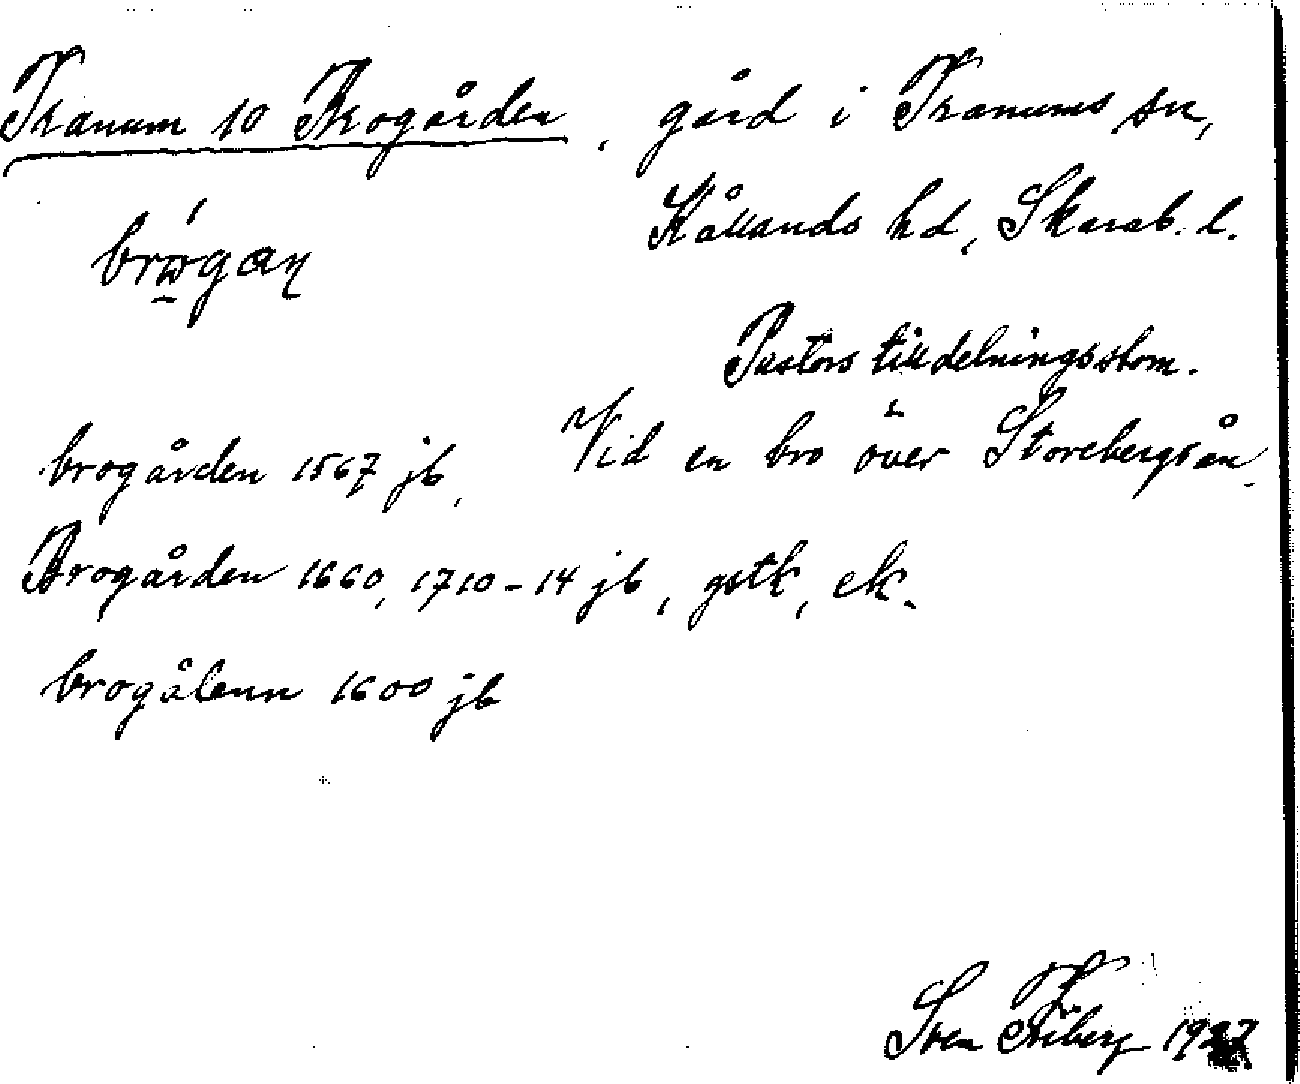 Tranum 10 Brogården, gård i Tranums sn,
Kållands hd, Skarab. l.
Pastors tilldelningsstom.
brogården 1567 jb, Vid en bro över Storebergsån.
Brogården 1660, 1710-14 jb, gstk, ek.
brogålenn 1600 jb
Sven Friberg 1927